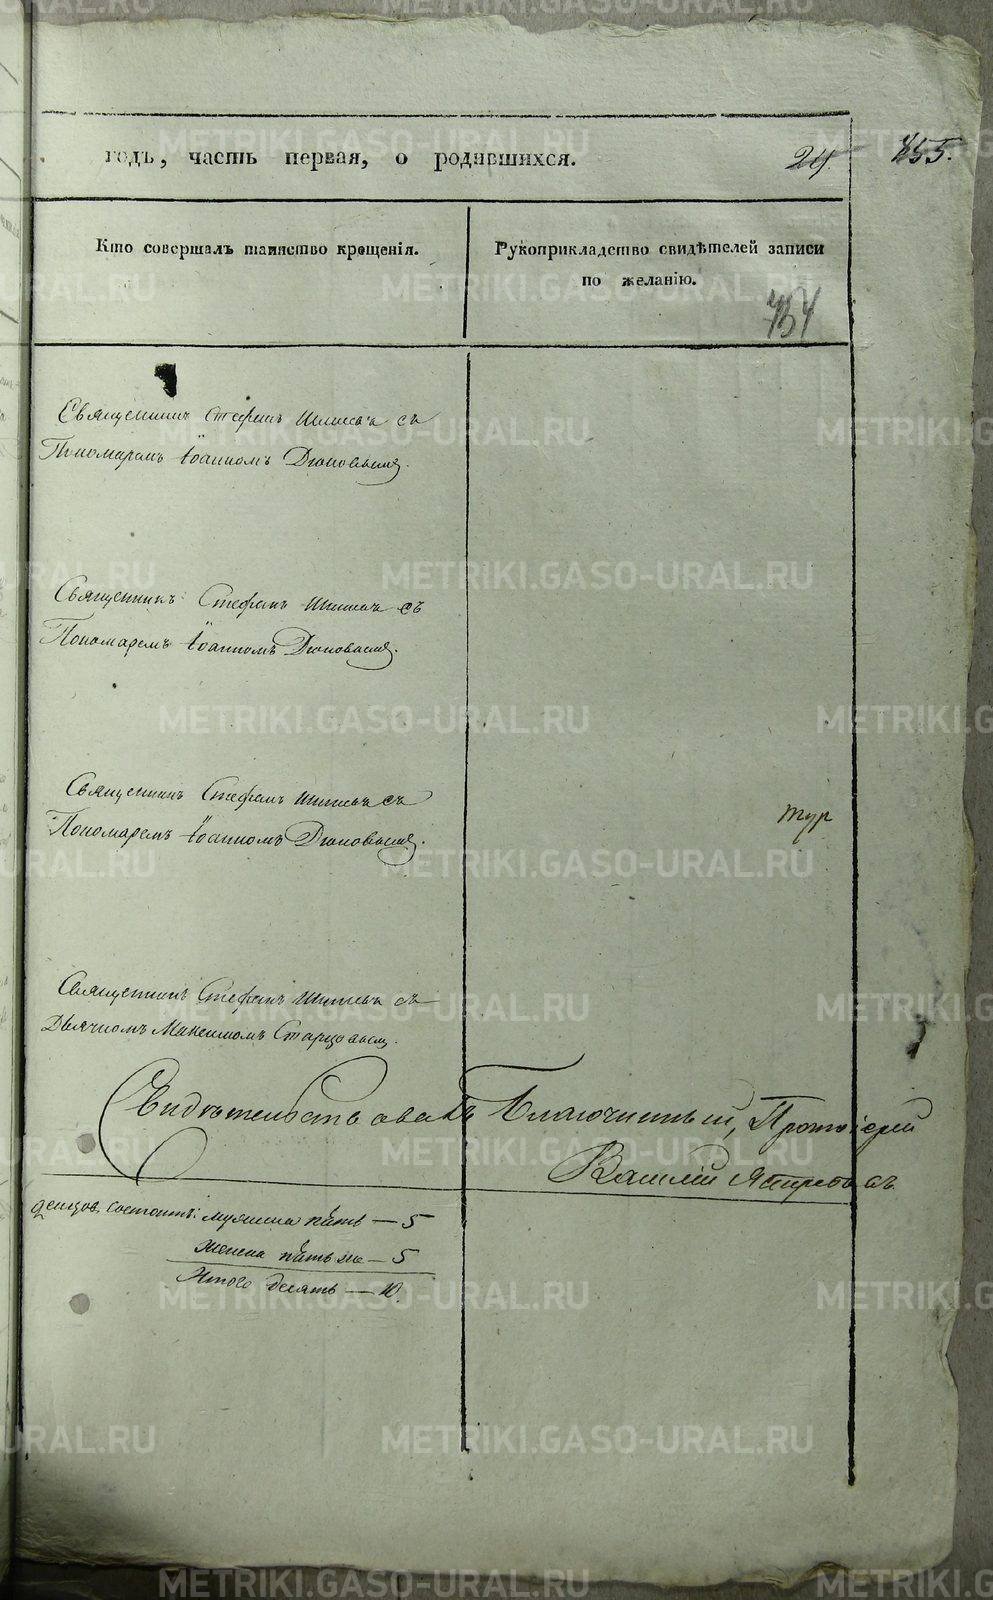 годъ, часть первая, о родившихся.
24.
455.
Кто совершалъ таинство крещенія.
Рукоприкладство свидѣтелей записи
по желанію.
454
Священникъ Стефанъ съ
Пономаремъ Іоанномъ
Священникъ Стефанъ съ
Пономаремъ Іоанномъ
Священникъ Стефанъ съ
тур
Пономаремъ Іоанномъ
Священникъ Стефанъ съ
Дьячкомъ Максимомъ Старцовымъ.
Свидѣтельствовалъ Благочинный, Протоіерей
Василій
состоитъ: мужеска пять — 5
женска пять же — 5
Итого десять — 10.
METRIKI.GASO-URAL.RU